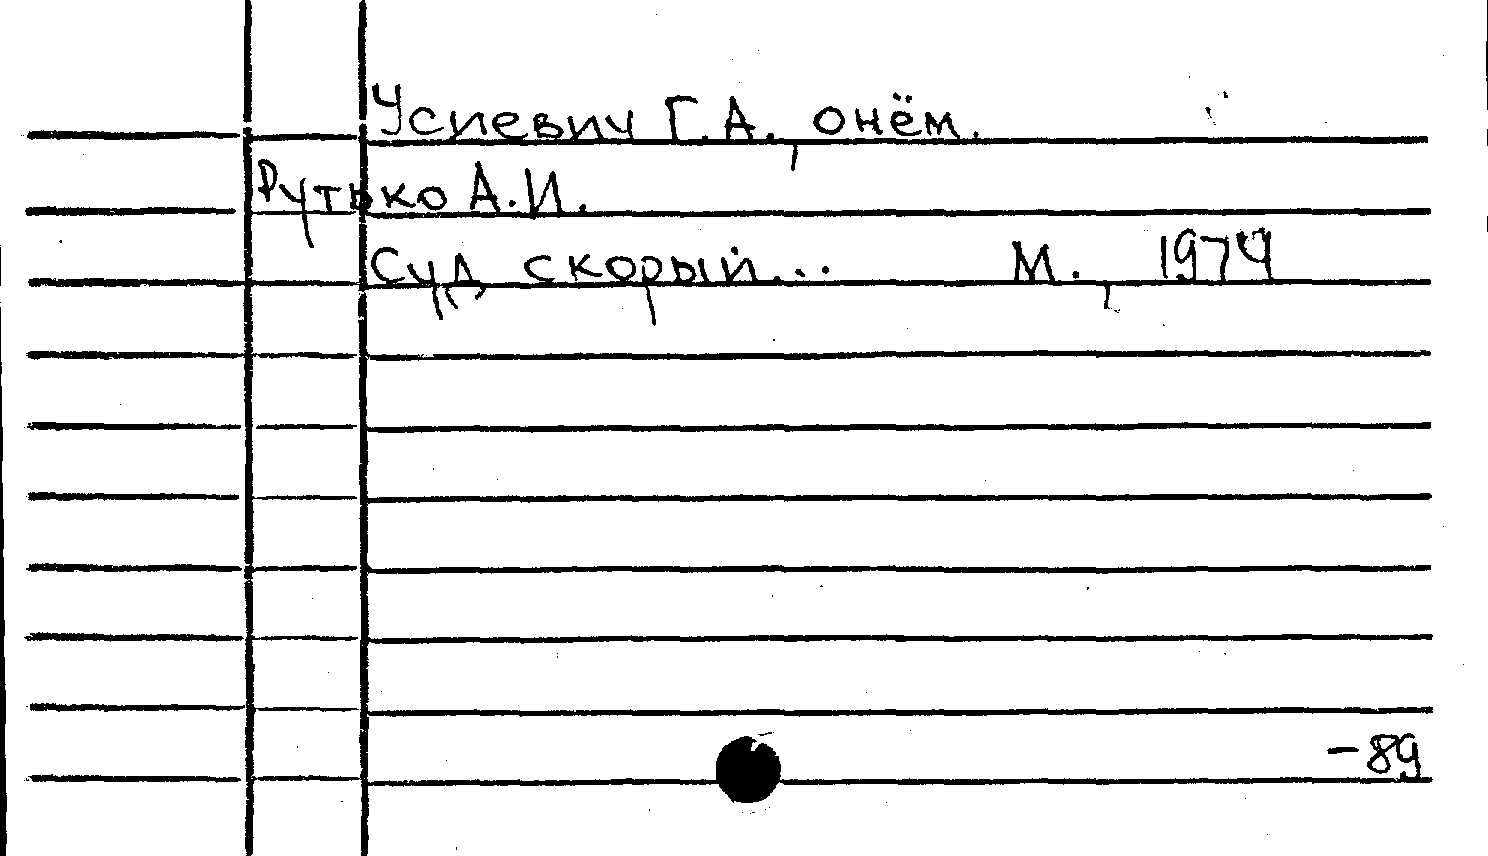 Усиевич Г.А., о нём.
Рутько А.И.
Суд скорый... М., 1974
-89